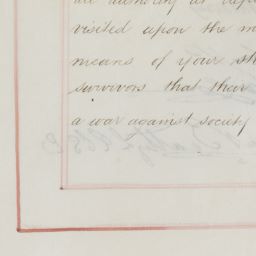 visited upon the m
means of your st
survivors that their
a war against society